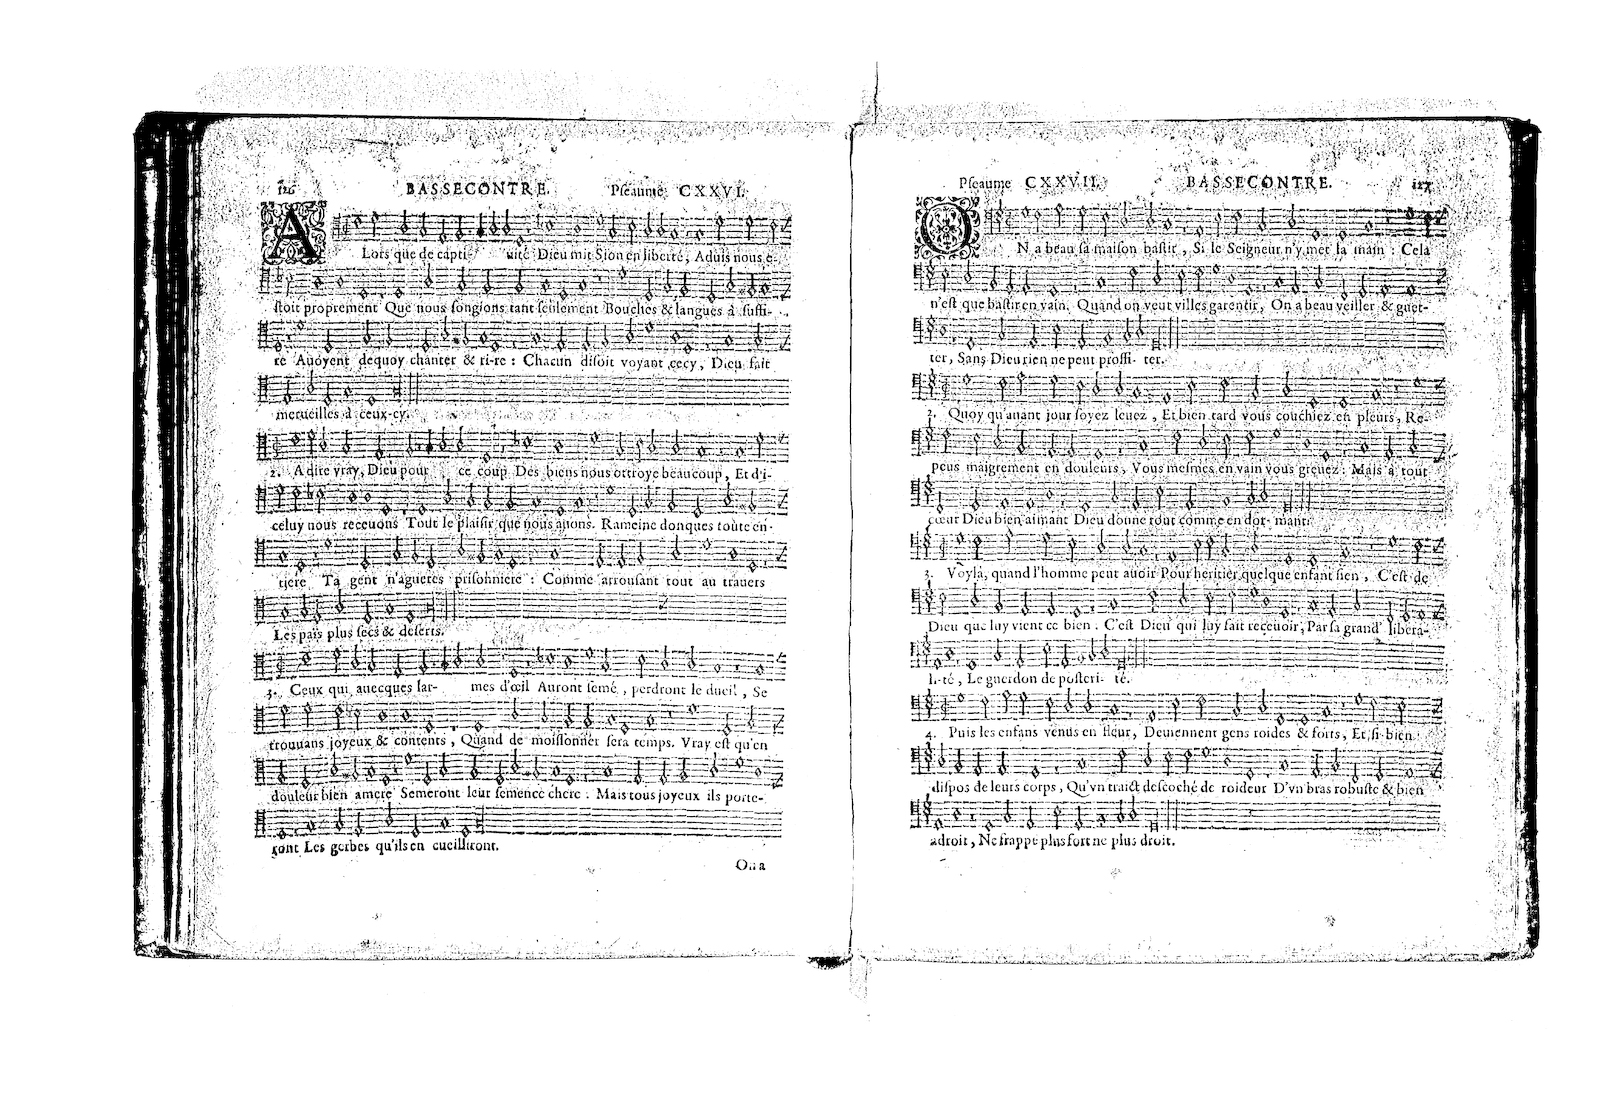 126 BASSECONTRE. Pſeaume CXXVI.
A Lors que de capti- uité Dieu mit Sion en liberté, Aduis nous e-
ſtoit proprement Que nous ſongions tant ſeulement Bouches & langues à ſuffi-
re Auoyent dequoy chanter & ri-re : Chacun diſoit voyant cecy, Dieu fait
merueilles à ceux-cy.
2. A dire vray, Dieu pour ce coup Des biens nous ottroye beaucoup, Et d'i-
celuy nous receuons Tout le plaiſir que nous auons. Rameine donques toute en-
tiere Ta gent n'agueres priſonniere : Comme arrouſant tout au trauers
Les païs plus ſecs & deſerts.
3. Ceux qui auecques lar- mes d'œil Auront ſemé, perdront le dueil, Se
trouuans joyeux & contents, Quand de moiſſonner ſera temps. Vray eſt qu'en
douleur bien amere Semeront leur ſemence chere : Mais tous joyeux ils porte-
ront Les gerbes qu'ils en cueilliront.
On a
Pſeaume CXXVII. BASSECONTRE. 127
ON a beau ſa maiſon baſtir, Si le Seigneur n'y met ſa main : Cela
n'eſt que baſtir en vain. Quand on veut villes garentir, On a beau veiller & guet-
ter, Sans Dieu rien ne peut proffi- ter.
2. Quoy qu'auant jour ſoyez leuez, Et bien tard vous couchiez en pleurs, Re-
peus maigrement en douleurs, Vous meſmes en vain vous greuez : Mais à tout
cœur Dieu bien aimant Dieu donne tout comme en dor- mant.
3. Voyla, quand l'homme peut auoir Pour heritier quelque enfant ſien, C'eſt de
Dieu que luy vient ce bien : C'eſt Dieu qui luy fait receuoir, Par ſa grand' libera-
li-té, Le guerdon de poſteri- té.
4. Puis les enfans venus en fleur, Deuiennent gens roides & forts, Et ſi bien
diſpos de leurs corps, Qu'vn traict deſcoché de roideur D'vn bras robuſte & bien
adroit, Ne frappe plus fort ne plus droit.